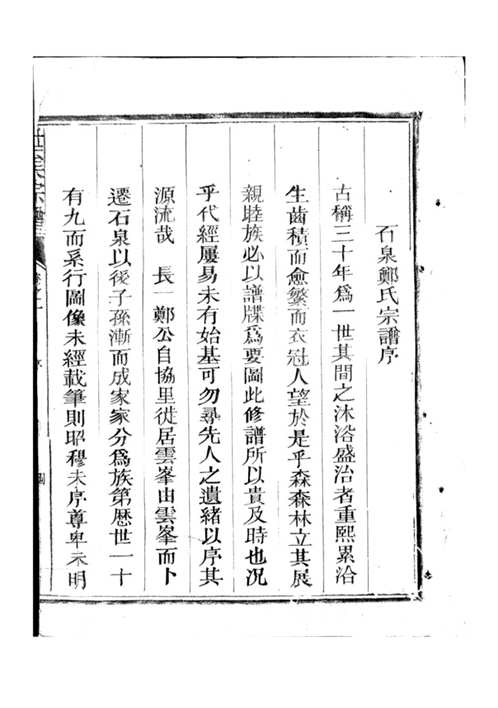 石泉鄭氏宗譜序
古稱三十年爲一世其間之沐浴盛治者重熙累洽
生齒積而愈繁而衣冠人望於是乎森森林立其展
親睦族必以譜牒爲要圖此修譜所以貴及時也況
乎代經屢易未有始基可勿尋先人之遺緒以序其
源流哉 長一鄭公自協里徙居雲峯由雲峯而卜
遷石泉以後子孫漸而成家家分爲族第歴世一十
有九而系行圖像未經載筆則昭穆未序尊卑未明